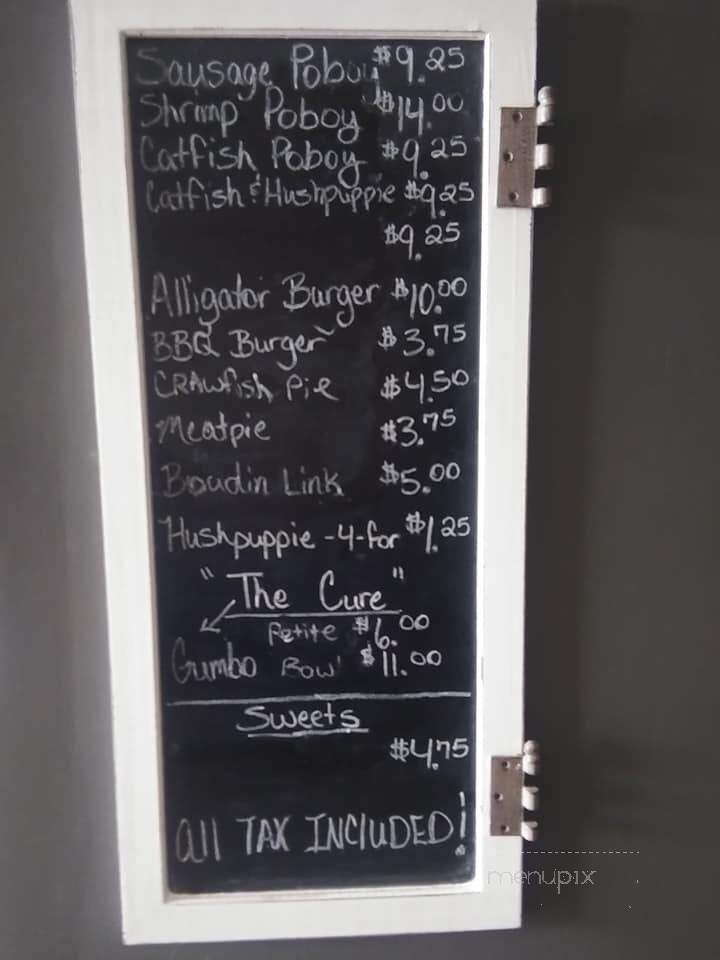 Sausage Poboy $9.25
Shrimp Poboy $14.00
Catfish Poboy $9.25
Catfish & Hushpuppie $9.25
$9.25
Alligator Burger $10.00
BBQ Burger $3.75
CRAWfish Pie $4.50
Meatpie $3.75
Boudin Link $5.00
Hushpuppie -4-for $1.25
"The Cure"
Petite $6.00
Gumbo Bowl $11.00
Sweets
$4.75
All TAX INCLUDED!
menupix